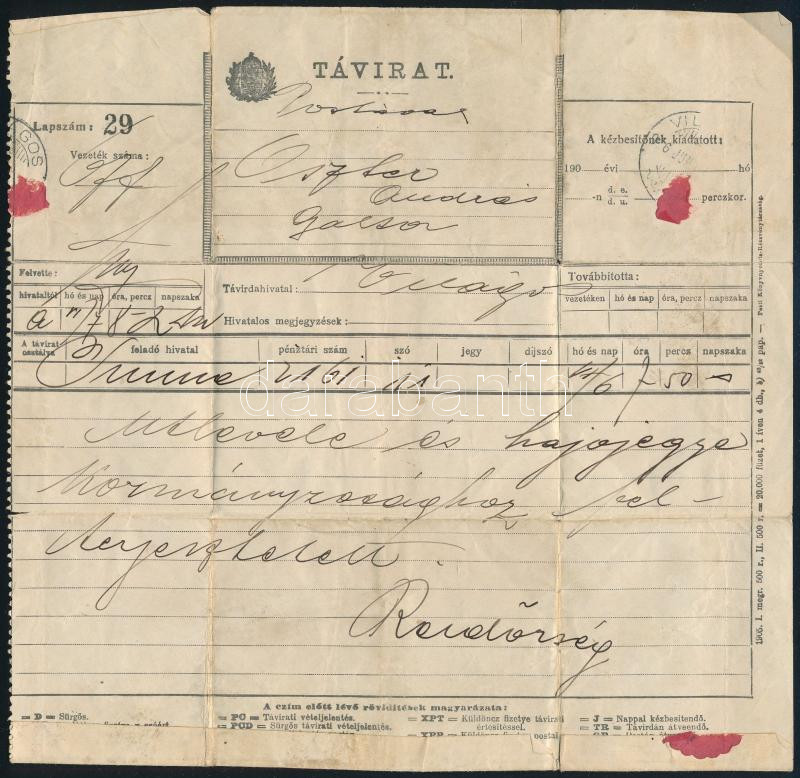 TÁVIRAT.
Lapszám: 29
Vezeték száma:
Oszter
András
Galsa
A kézbesítőnek kiadatott:
190 évi hó
-n d. e. / d. u. perczkor.
VIL
GOS
Felvette:
hivataltól hó és nap óra, percz napszaka
Távirdahivatal: Világos
Hivatalos megjegyzések:
Továbbitotta:
vezetéken hó és nap óra, percz napszaka
A távirat osztálya feladó hivatal pénztári szám szó jegy díjszó hó és nap óra percz napszaka
Fiume 2161 11 7 50
Utlevele és hajójegye
Kormányzósághoz fel-
terjesztetett.
Rendőrség
A czím előtt lévő rövidítések magyarázata:
= D = Sürgős.
= PC = Távirati vételjelentés.
= PCD = Sürgős távirati vételjelentés.
= XPT = Küldöncz fizetve távirati értesítéssel.
= J = Nappal kézbesitendő.
= TR = Távirdán átveendő.
darabanth